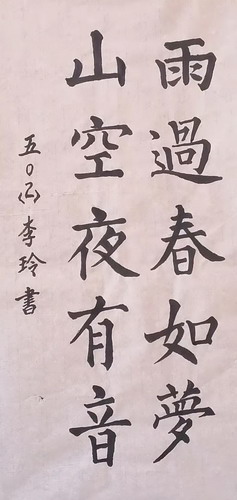 雨過春如夢
山空夜有音
五0(二)李玲書